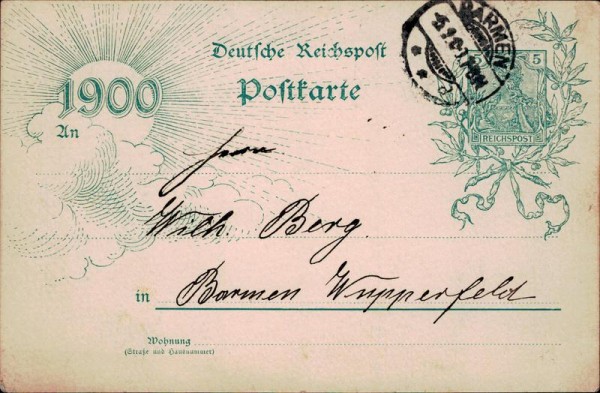 Deutsche Reichspost
Postkarte
1900
An
BARMEN
5
REICHSPOST
Herrn
Wilh. Berg.
in Barmen Wupperfeld
Wohnung
(Straße und Hausnummer)